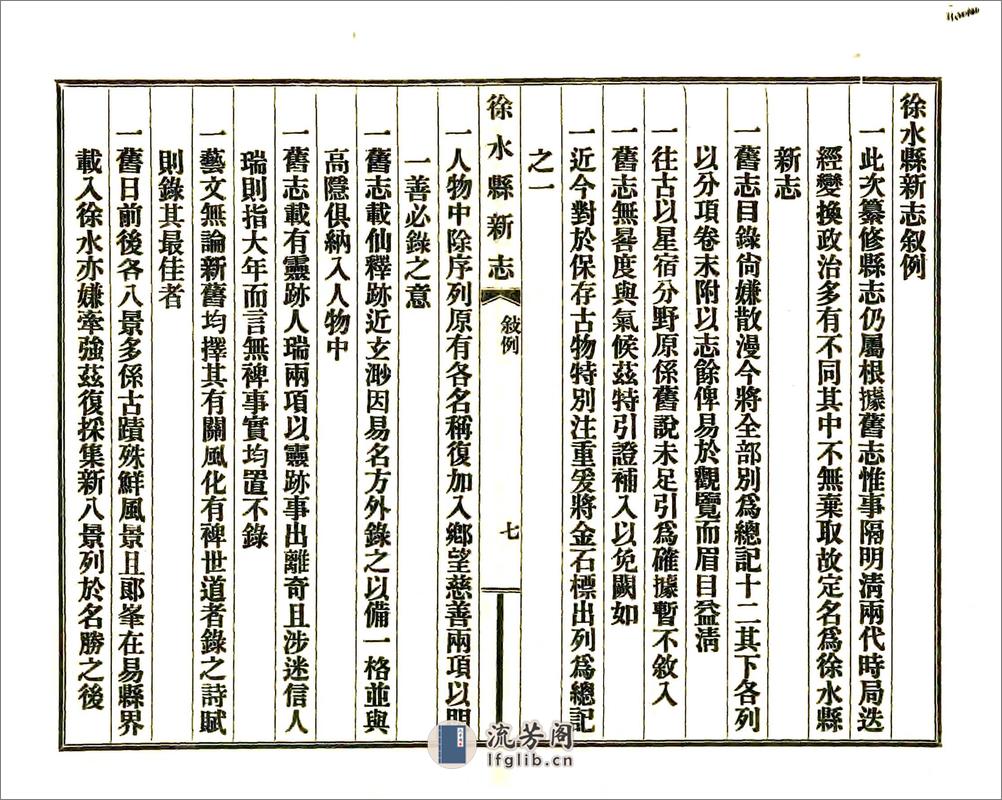 徐水縣新志叙例
一此次纂修縣志仍屬根據舊志惟事隔明清兩代時局迭
經變換政治多有不同其中不無棄取故定名爲徐水縣
新志
一舊志目錄尙嫌散漫今將全部別爲總記十二其下各列
以分項卷末附以志餘俾易於觀覽而眉目益清
一往古以星宿分野原係舊說未足引爲確據暫不敘入
一舊志無晷度與氣候茲特引證補入以免闕如
一近今對於保存古物特別注重爰將金石標出列爲總記
之一
徐水縣新志
敍例
七
一人物中除序列原有各名稱復加入鄉望慈善兩項以明
一善必錄之意
一舊志載仙釋跡近玄渺因易名方外錄之以備一格並與
高隱俱納入人物中
一舊志載有靈跡人瑞兩項以靈跡事出離奇且涉迷信人
瑞則指大年而言無裨事實均置不錄
一藝文無論新舊均擇其有關風化有裨世道者錄之詩賦
則錄其最佳者
一舊日前後各八景多係古蹟殊鮮風景且郞峯在易縣界
載入徐水亦嫌牽強茲復採集新八景列於名勝之後
流芳阁
lfglib.cn